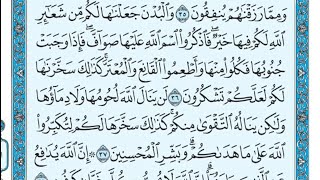 وَمِمَّا رَزَقْنَٰهُمْ يُنفِقُونَ ٣٥ وَٱلْبُدْنَ جَعَلْنَٰهَا لَكُم مِّن شَعَٰٓئِرِ
ٱللَّهِ لَكُمْ فِيهَا خَيْرٌ ۖ فَٱذْكُرُوا۟ ٱسْمَ ٱللَّهِ عَلَيْهَا صَوَآفَّ ۖ فَإِذَا وَجَبَتْ
جُنُوبُهَا فَكُلُوا۟ مِنْهَا وَأَطْعِمُوا۟ ٱلْقَانِعَ وَٱلْمُعْتَرَّ ۚ كَذَٰلِكَ سَخَّرْنَٰهَا
لَكُمْ لَعَلَّكُمْ تَشْكُرُونَ ٣٦ لَن يَنَالَ ٱللَّهَ لُحُومُهَا وَلَا دِمَآؤُهَا
وَلَٰكِن يَنَالُهُ ٱلتَّقْوَىٰ مِنكُمْ ۚ كَذَٰلِكَ سَخَّرَهَا لَكُمْ لِتُكَبِّرُوا۟
ٱللَّهَ عَلَىٰ مَا هَدَىٰكُمْ ۗ وَبَشِّرِ ٱلْمُحْسِنِينَ ٣٧ ۞ إِنَّ ٱللَّهَ يُدَٰفِعُ